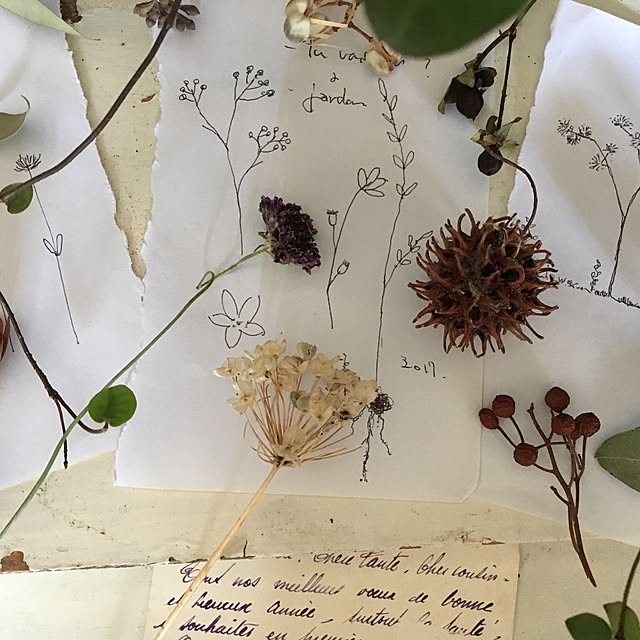 - Tu va ?
à
- jardin
2017.
Chère Tante, Cher Cousin -
Tout nos meilleurs vœux de bonne
et heureux année, surtout la santé
souhaites en